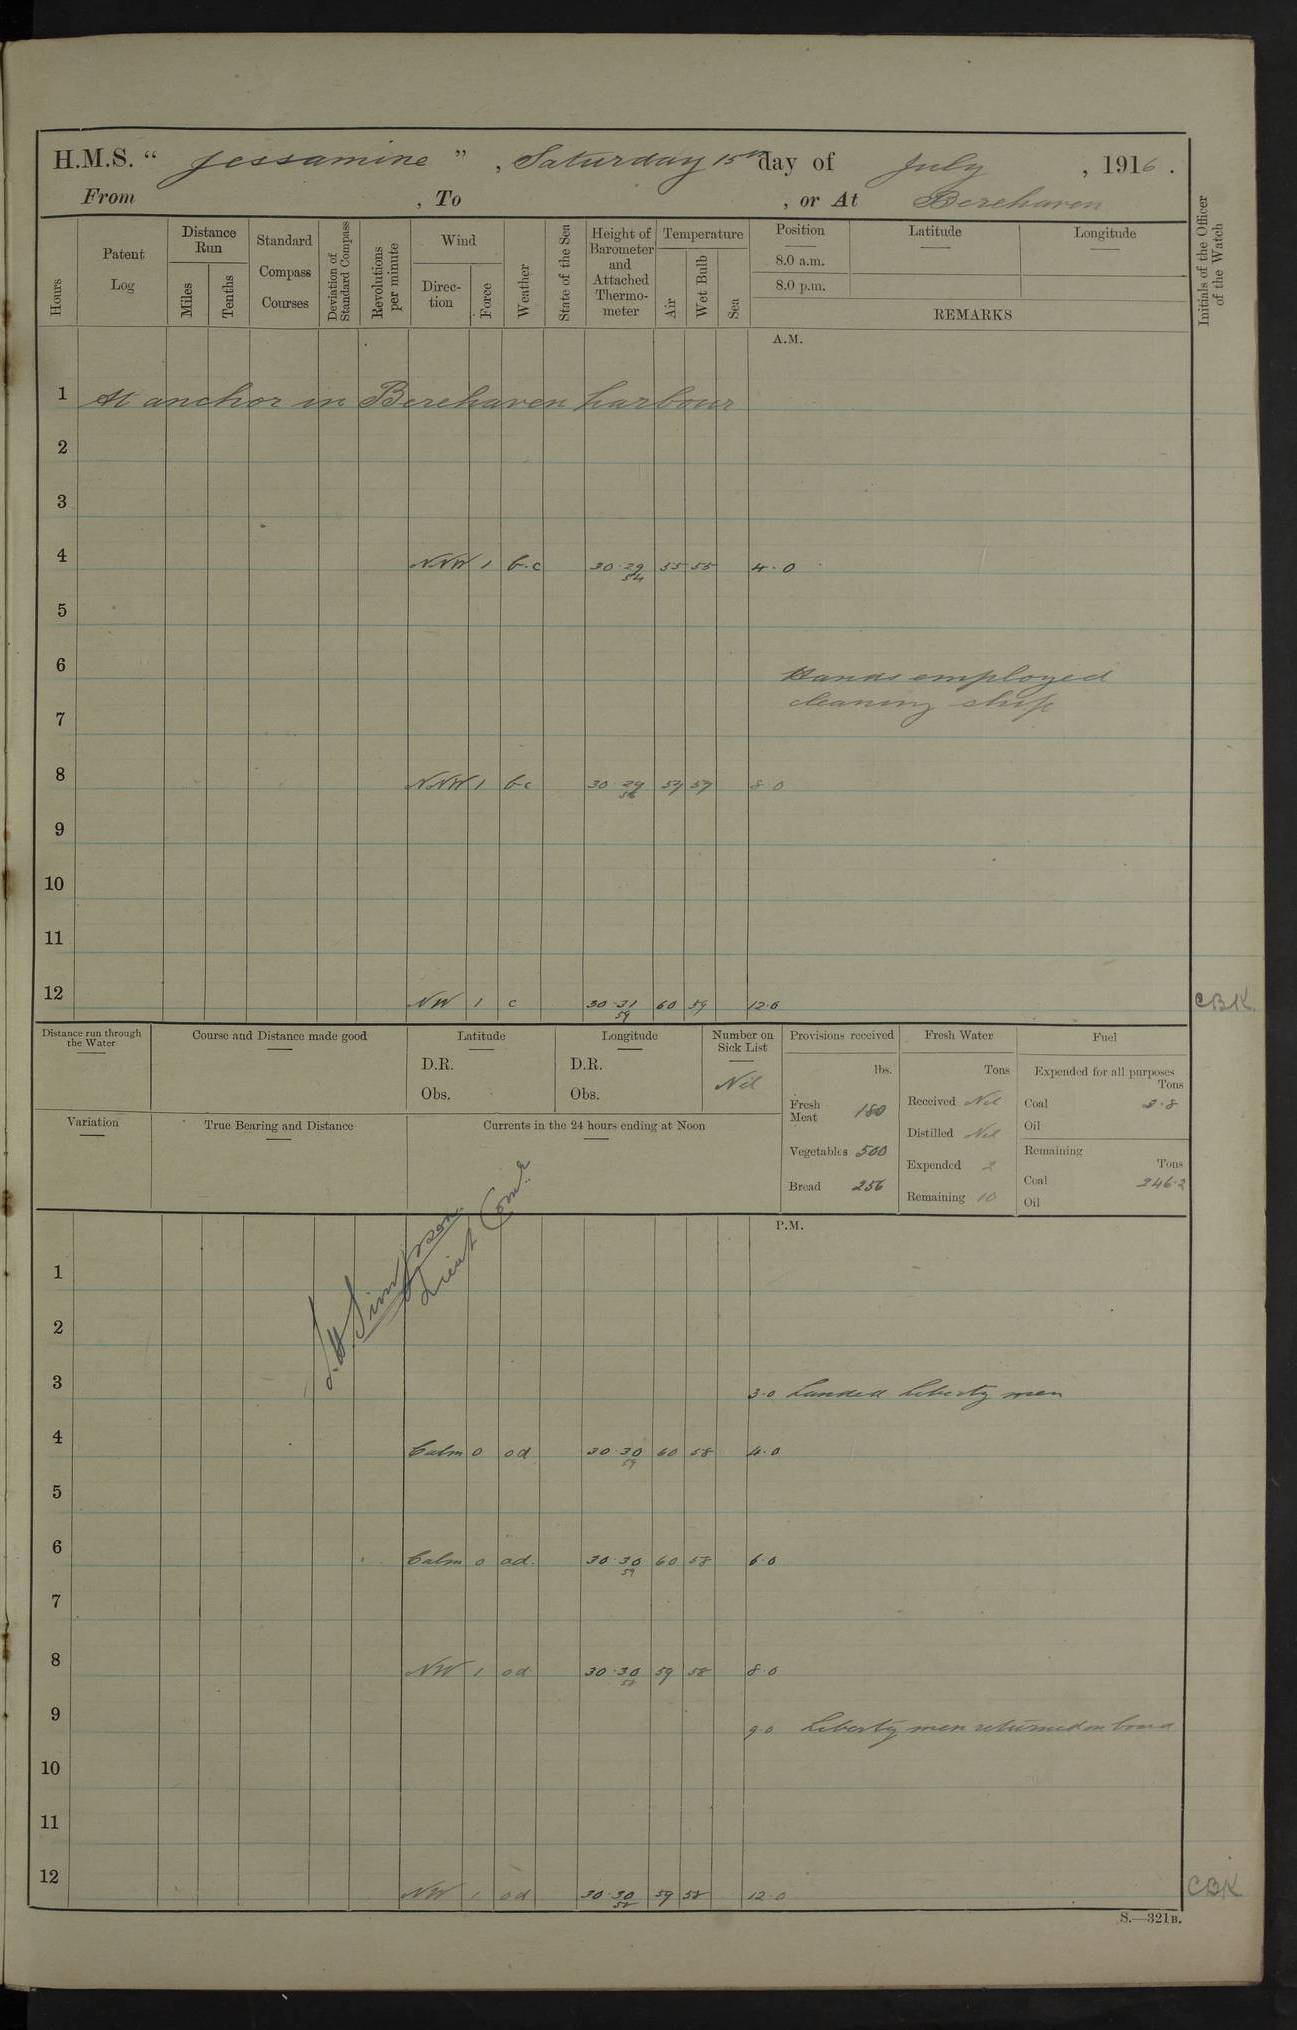 H.M.S. “ Jessamine ” , Saturday 15th day of July , 1916 .
From , To , or At Berehaven
Hours
Patent Log
Distance Run
Miles
Tenths
Standard Compass Courses
Deviation of Standard Compass
Revolutions per minute
Wind
Direction
Force
Weather
State of the Sea
Height of Barometer and Attached Thermometer
Temperature
Air
Wet Bulb
Sea
Position
8.0 a.m.
8.0 p.m.
Latitude
Longitude
REMARKS
Initials of the Officer of the Watch
A.M.
1 At anchor in Berehaven harbour
2
3
4 NNW 1 b.c 30.29 54 55 55 4.0
5
6 Hands employed
7 cleaning ship
8 NNW 1 bc 30.29 56 8.0
9
10
11
12 NW 1 c 30.31 59 60 59 12.0 CBK
Distance run through the Water
Course and Distance made good
Latitude
D.R.
Obs.
Longitude
D.R.
Obs.
Number on Sick List
Nil
Provisions received
lbs.
Fresh Meat 180
Vegetables 500
Bread 256
Fresh Water
Tons
Received Nil
Distilled Nil
Expended 2
Remaining 10
Fuel
Expended for all purposes
Tons
Coal 3.8
Oil
Remaining
Tons
Coal 246.2
Oil
Variation
True Bearing and Distance
Currents in the 24 hours ending at Noon
Simpson
Lieut Comr
P.M.
1
2
3 3.0 Landed liberty men
4 Calm 0 od 30.30 59 60 58 4.0
5
6 Calm 0 od. 30.30 59 60 58 6.0
7
8 NW 1 od 30.30 58 59 58 8.0
9 9.0 Liberty men returned on board
10
11
12 NW 1 od 30.30 58 59 58 12.0 CBK
S.—321B.